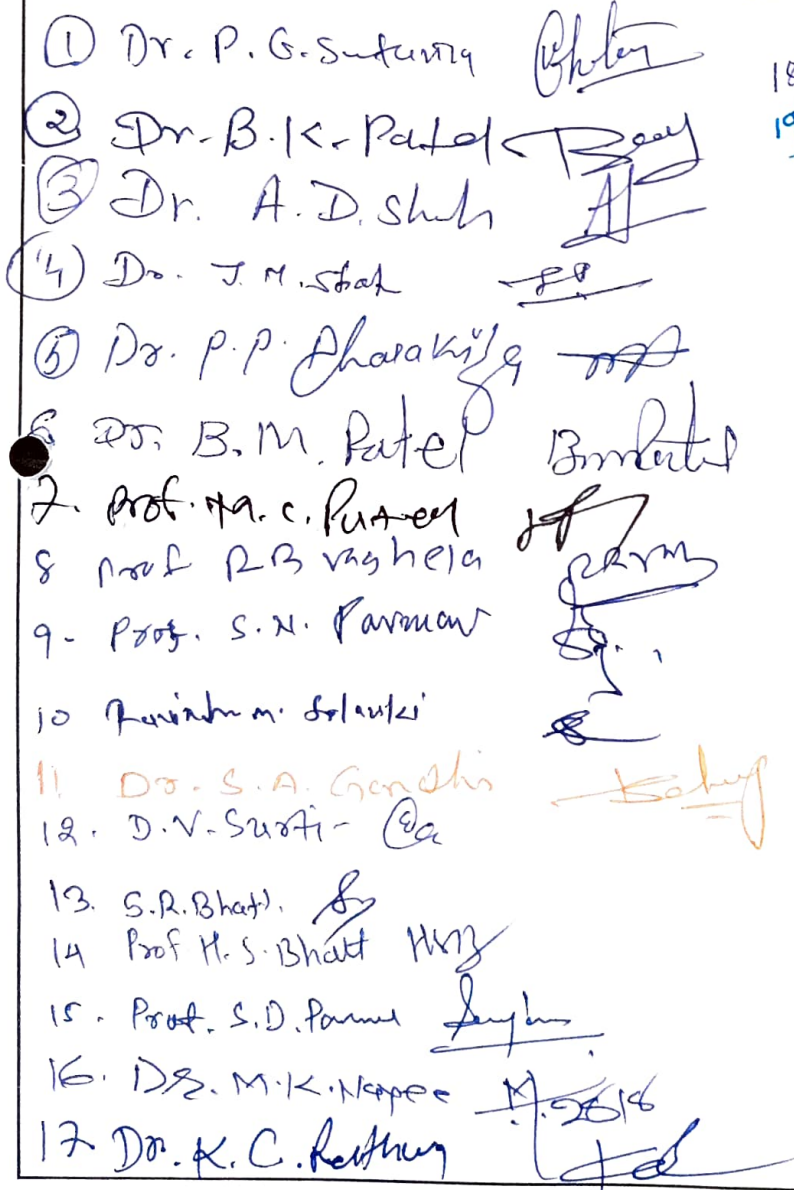 ① Dr. P. G. Sutariya
18
② Dr. B. K. Patel
19
③ Dr. A. D. Shah
④ Dr. J. M. Shah
⑤ Dr. P. P. Dharakiya
6 Dr. B. M. Patel Bmpatel
7. Prof. M. C. Patel
8 Prof R B Vaghela
9- Prof. S. N. Parmar
10 Ravindra m. Solanki
11 Dr. S. A. Gandhi
12. D. V. Surti-
13. S. R. Bhatt.
14 Prof H. S. Bhatt HSB
15. Prof. S. D. Parmar
16. Dr. M. K.
17 Dr. K. C. Rathwa